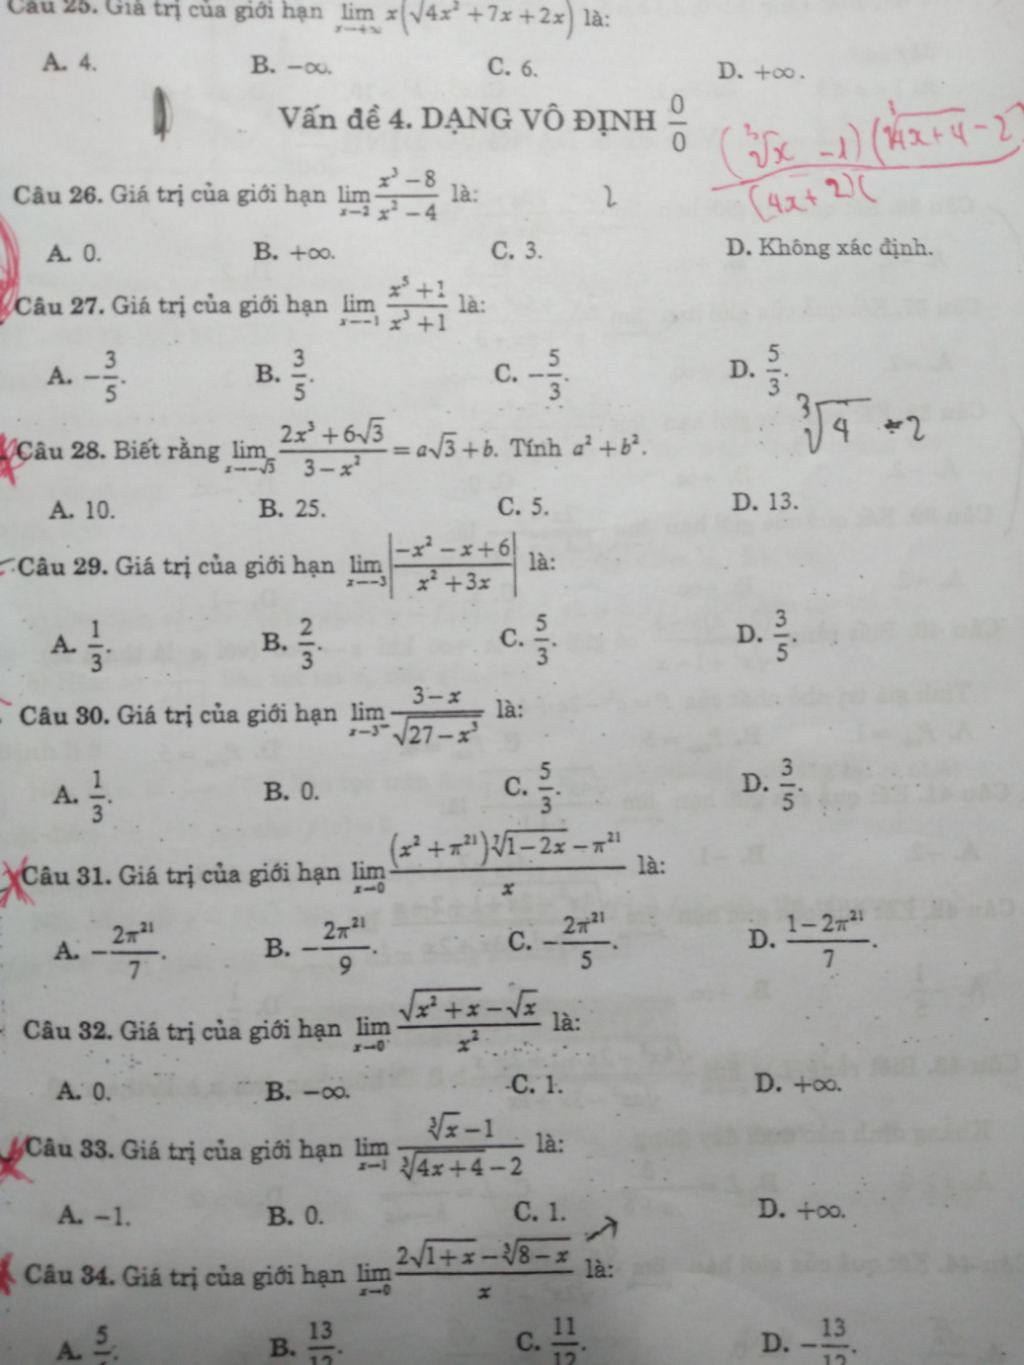 Câu 25. Giá trị của giới hạn lim x→+∞ x(√4x² + 7x + 2x) là:
A. 4. B. −∞. C. 6. D. +∞.
Vấn đề 4. DẠNG VÔ ĐỊNH 0/0
(∛x − 1)(∛4x + 4 − 2
(4x + 2)(
Câu 26. Giá trị của giới hạn lim x→2 (x³ − 8)/(x² − 4) là: 2
A. 0. B. +∞. C. 3. D. Không xác định.
Câu 27. Giá trị của giới hạn lim x→−1 (x⁵ + 1)/(x³ + 1) là:
A. −3/5. B. 3/5. C. −5/3. D. 5/3.
∛4 − 2
Câu 28. Biết rằng lim x→−√3 (2x³ + 6√3)/(3 − x²) = a√3 + b. Tính a² + b².
A. 10. B. 25. C. 5. D. 13.
Câu 29. Giá trị của giới hạn lim x→−3 |(−x² − x + 6)/(x² + 3x)| là:
A. 1/3. B. 2/3. C. 5/3. D. 3/5.
Câu 30. Giá trị của giới hạn lim x→3⁻ (3 − x)/√(27 − x³) là:
A. 1/3. B. 0. C. 5/3. D. 3/5.
Câu 31. Giá trị của giới hạn lim x→0 ((x² + π²¹)⁷√(1 − 2x) − π²¹)/x là:
A. −2π²¹/7. B. −2π²¹/9. C. −2π²¹/5. D. (1 − 2π²¹)/7.
Câu 32. Giá trị của giới hạn lim x→0 (√(x² + x) − √x)/x² là:
A. 0. B. −∞. C. 1. D. +∞.
Câu 33. Giá trị của giới hạn lim x→1 (∛x − 1)/(∛(4x + 4) − 2) là:
A. −1. B. 0. C. 1. D. +∞.
Câu 34. Giá trị của giới hạn lim x→0 (2√(1 + x) − ∛(8 − x))/x là:
A. 5/ B. 13/12. C. 11/12. D. −13/12.